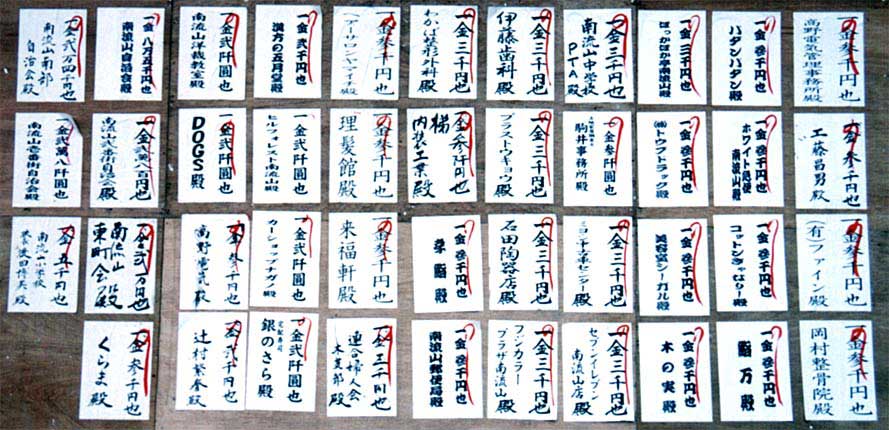 一金参千円也
高野電気管理事務所殿
一金参千円也
一金三千円也
一金三千円也
南流山中学校
PTA殿
一金三千円也
伊藤歯科殿
一金三千円也
わかば整形外科殿
一金参千円也
一金弐千円也
漢方の五月堂殿
一金弐阡圓也
南流山洋裁教室殿
一金八万五千円也
南流山自治会殿
一金弐万四千円也
南流山南部
自治会殿
一金参千円也
工藤昌男殿
一金参千円也
ホワイト急便
南流山殿
一金参千円也
㈱トウフトラック殿
一金参阡圓也
駒井事務所殿
一金三千円也
プラストウキョウ殿
一金参阡円也
楊
内装工業殿
一金参千円也
理髪館殿
一金弐阡圓也
ヒルフォレスト南流山殿
一金弐阡圓也
DOGS殿
南流山弐番街自治会殿
一金弐萬八阡圓也
南流山壱番街自治会殿
一金参千円也
(有)ファイン殿
一金参千円也
一金参千円也
美容室シーガル殿
一金三千円也
一金三千円也
石田陶器店殿
一金参千円也
幸鮨殿
一金参千円也
来福軒殿
一金弐阡圓也
カーショップナガノ殿
一金参千円也
高野電気殿
南流山
東町会殿
一金五千円也
南流山小学校
一金参千円也
岡村整骨院殿
一金参千円也
鮨万殿
一金参千円也
木の実殿
一金三千円也
セブンイレブン
南流山店殿
一金三千円也
フジカラー
プラザ南流山殿
一金参千円也
南流山郵便局殿
一金三千円也
連合婦人会
一金弐阡圓也
宅配寿司
銀のさら殿
一金弐千円也
辻村繁春殿
一金参千円也
くらま殿